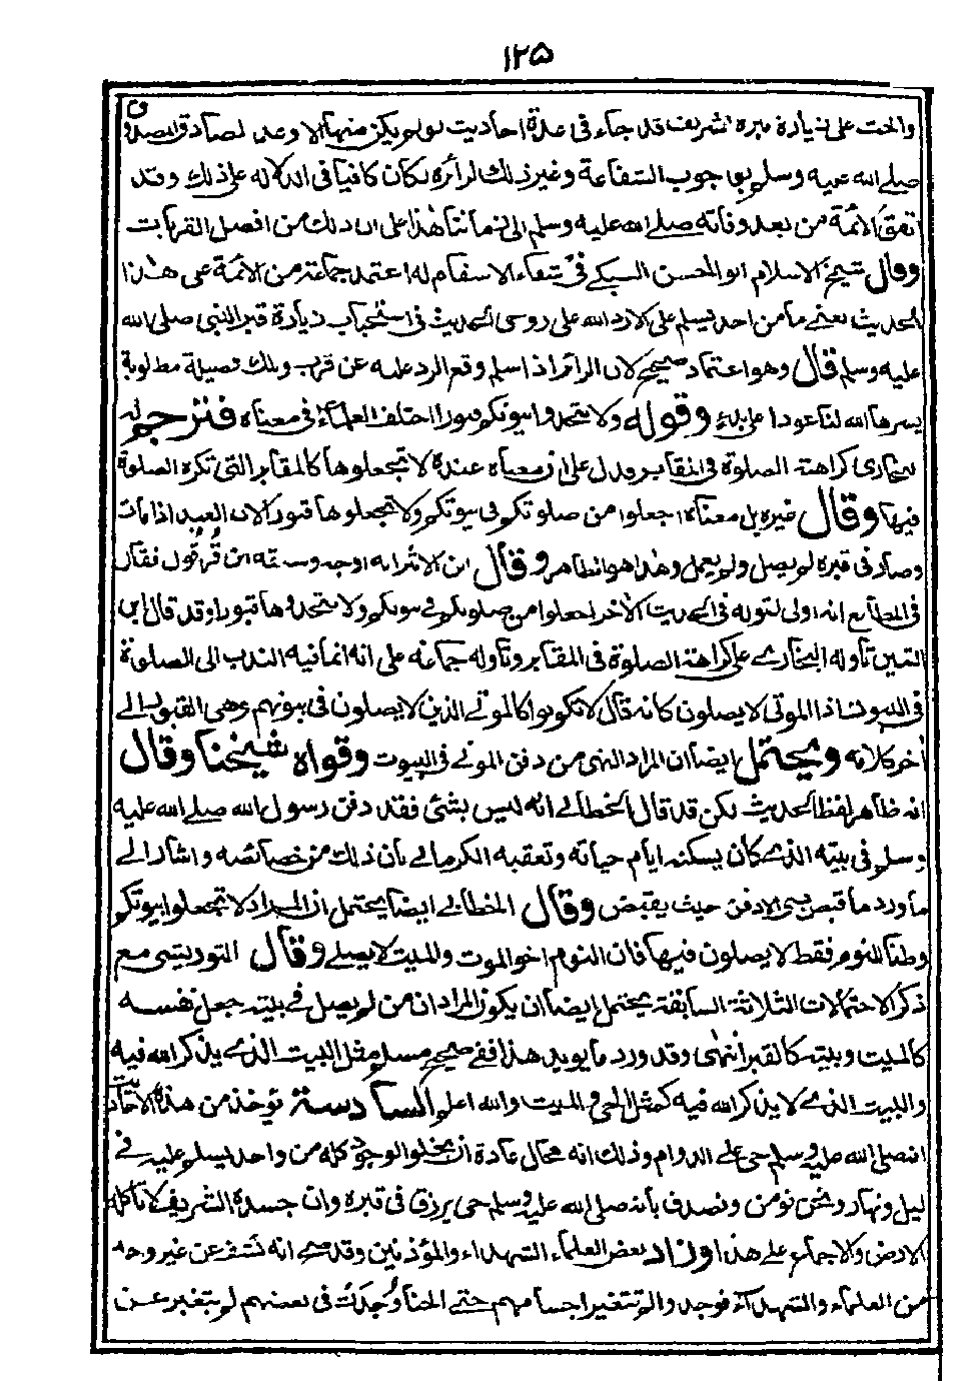 ١٢٥
والحث على زيارة قبره الشريف قد جاء فى عدة احاديث لو لم يكن منها الا وعد الصادق المصدوق
صلے الله عليه وسلم بوجوب الشفاعة وغير ذلك للزائره لكان كافيا فى الدلالة على ذلك وقد
اتفق الائمة من بعد وفاته صلے الله عليه وسلم الى زماننا هذا على ان ذلك من افضل القربات
وقال شيخ الاسلام ابو الحسن السبكے فى شفاء الاسقام له اعتمد جماعة من الائمة على هذا
الحديث يعنے ما من احد يسلم على الا رد الله على روحى الحديث فى استحباب زيارة قبر النبى صلى الله
عليه وسلم قال وهو اعتماد صحيح لان الزائر اذا سلم وقع الرد عليه عن قرب وتلك فضيلة مطلوبة
يسرها الله لنا عودا على بدء وقوله ولا تتخذوا بيوتكم قبورا اختلف العلماء فى معناه فترجم له
البخارى كراهة الصلوة فى المقابر فدل على ان معناه عنده لا تجعلوها كالمقابر التى تكره الصلوة
فيها وقال غيره بل معناه اجعلوا من صلوتكم فى بيوتكم ولا تجعلوها قبورا لان العبد اذا مات
وصار فى قبره لم يصل ولم يعمل وهذا هو الظاهر وقال ابن الاثير انه اوجه وسبقه ابن قرقول فقال
فى المطالع انه اولى لقوله فى الحديث الأخر اجعلوا من صلوتكم فى بيوتكم ولا تتخذوها قبورا وقد قال ابن
التين تأوله البخارے على كراهة الصلوة فى المقابر وتأوله جماعة على انه انما فيه الندب الى الصلوة
فى البيوت اذ الموتى لا يصلون كانه قال لا تكونوا كالموتے الذين لا يصلون فى بيوتهم وهى القبور الے
أخر كلامه ويحتمل ايضا ان المراد النهى من دفن الموتے فى البيوت وقواه شيخنا وقال
انه ظاهر لفظ الحديث لكن قد قال الخطابے انه ليس بشئ فقد دفن رسول الله صلے الله عليه
وسلم فى بيته الذے كان يسكنه ايام حياته وتعقبه الكرمانے بأن ذلك من خصائصه واشار الے
ما ورد ما قبض نبى الا دفن حيث يقبض وقال الخطابے ايضا يحتمل ان المراد لا تجعلوا بيوتكم
وطنا للنوم فقط لا يصلون فيها فان النوم اخو الموت والميت لا يصلے وقال التوربشتى مع
ذكر الاحتمالات الثلاثة السابقة يحتمل ايضا ان يكون المراد ان من لم يصل فے بيته جعل نفسه
كالميت وبيته كالقبر انتهى وقد ورد ما يويد هذا ففى صحيح مسلم مثل البيت الذے يذكر الله فيه
والبيت الذے لا يذكر الله فيه كمثل الحى والميت والله اعلم السادسة توخذ من هذه الاحاديث
انه صلى الله عليه وسلم حى على الدوام وذلك انه محال عادة ان يخلو الوجود كله من واحد يسلم عليه فے
ليل ونهار ونحن نومن ونصدق بأنه صلى الله عليه وسلم حى يرزق فى قبره وان جسده الشريف لا تأكله
الارض والاجماع علے هذا وزاد بعض العلماء الشهداء والمؤذنين وقد صح انه كشف عن غير واحد
من العلماء والشهداء فوجدوا لم تتغير اجسامهم حتے الحناء وُجدت فى بعضهم لم يتغير عن